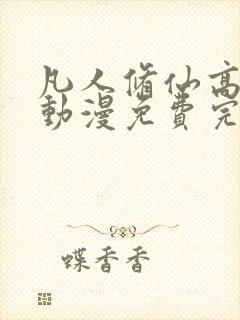 凡人脩仙高
動漫免費完
蝶香香